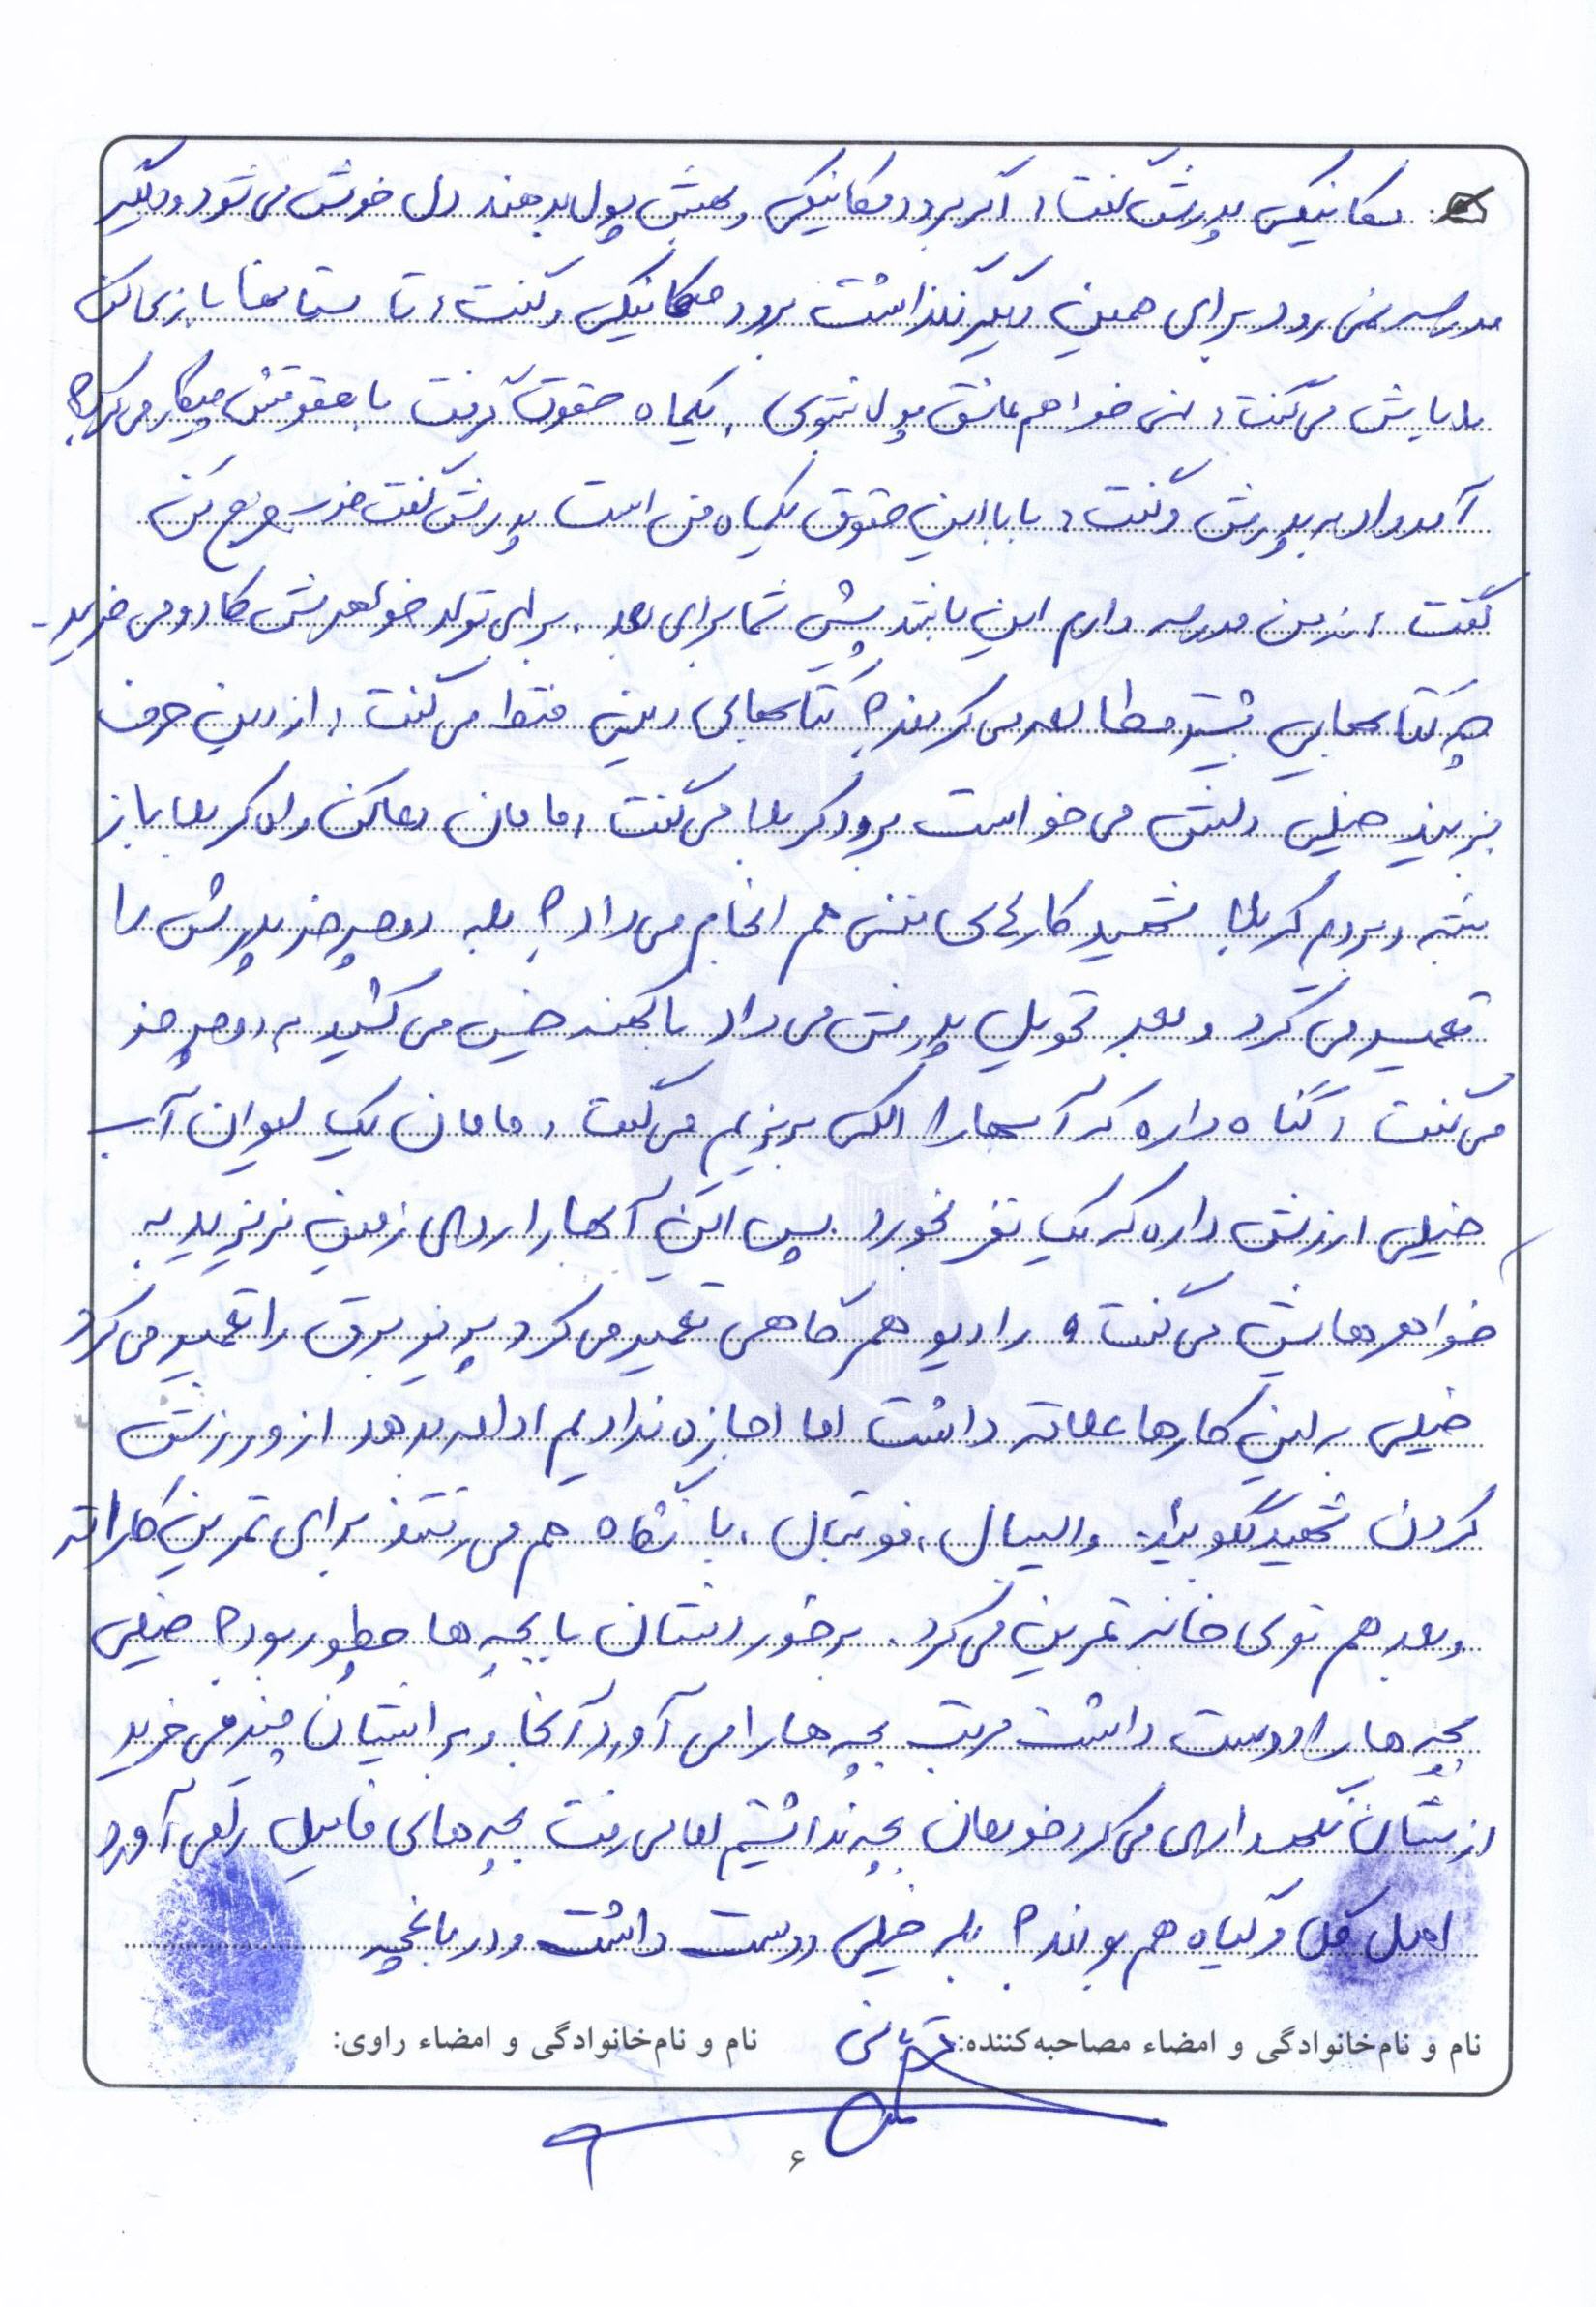 مکانیکی پدرش گفت، اگر برود مکانیکی و بهش پول بدهند دل خوش می شود و دیگر
مدرسه نمی رود برای همین دیگر نگذاشت برود مکانیکی و گفت، تا
بابایش می گفت، نمی خواهم عاشق پول بشوی، یکماه حقوق گرفت با حقوقش چیکار می کرد؟
آمد داد به پدرش و گفت، بابا این حقوق یکماه من است پدرش گفت خودت خرج کن
گفت، نه من مدرسه دارم این باشد پیش شما برای بعد. برای تولد خواهرش کادو می خرید.
چه کتابهایی بیشتر مطالعه می کردند؟ کتابهای دینی فقط می گفت، از دین حرف
بزنید خیلی دلش می خواست برود کربلا می گفت، مامان دعا کن راه کربلا باز
بشه و بروم کربلا. شهید کارهای فنی هم انجام می داد؟ بله دوچرخه پدرش را
تعمیر می کرد و بعد تحویل پدرش می داد با کهنه خیس می کشید به دوچرخه
می گفت، گناه داره که آبها را الکی بریزیم می گفت، مامان یک لیوان آب
خیلی ارزش داره که یک نفر بخورد پس این آبها را روی زمین نریزید به
خواهرهایش می گفت، رادیو هم گاهی تعمیر می کرد پریز برق را تعمیر می کرد
خیلی به این کارها علاقه داشت اما اجازه ندادیم ادامه بدهد از ورزش
کردن شهید بگویید. والیبال، فوتبال، باشگاه هم می رفتند برای تمرین کاراته
و بعد هم توی خانه تمرین می کرد. برخوردشان با بچه ها چطور بود؟ خیلی
بچه ها را دوست داشت مرتب بچه ها را می آورد آنجا و برایشان چیز می خرید
ازشان نگهداری می کرد خودمان بچه نداشتیم اما می رفت بچه های فامیل را می آورد
اهل گل و گیاه هم بودند؟ بله خیلی دوست داشت و در باغچه
نام و نام‌خانوادگی و امضاء مصاحبه‌کننده:
نام و نام‌خانوادگی و امضاء راوی:
۶